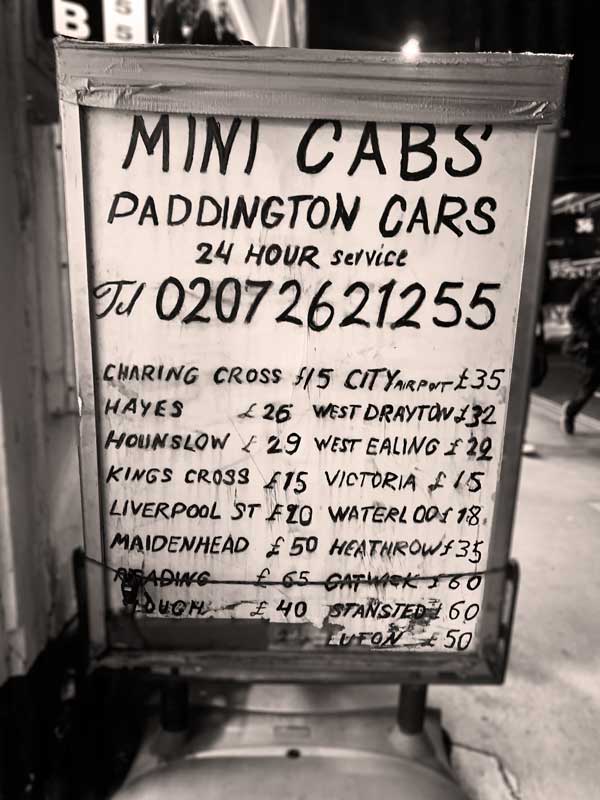 B
S
S
MINI CABS
PADDINGTON CARS
24 HOUR service
Tel 02072621255
CHARING CROSS £15 CITY AIRPORT £35
HAYES £26 WEST DRAYTON £32
HOUNSLOW £29 WEST EALING £22
KINGS CROSS £15 VICTORIA £15
LIVERPOOL ST £20 WATERLOO £18
MAIDENHEAD £50 HEATHROW £35
READING £65 GATWICK £60
OUGH £40 STANSTED £60
LUTON £50